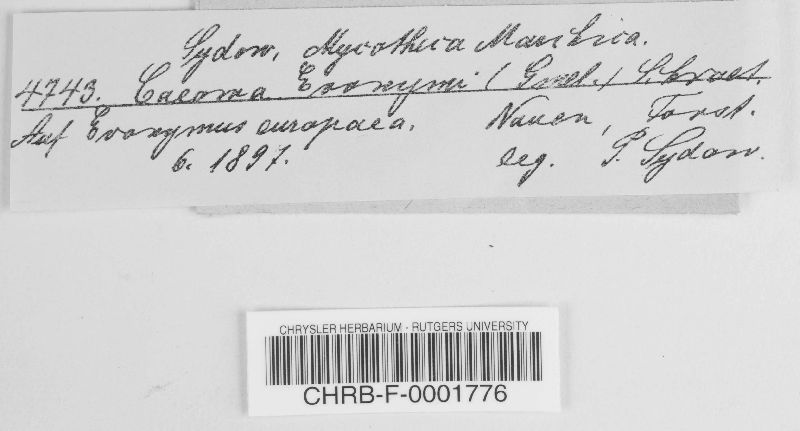 Sydow, Mycotheca Marchica.
4743. Caeoma Evonymi (Gmel.) Schroet.
Auf Evonymus europaea. Nauen, Forst.
6. 1897. leg. P. Sydow.
CHRYSLER HERBARIUM - RUTGERS UNIVERSITY
CHRB-F-0001776